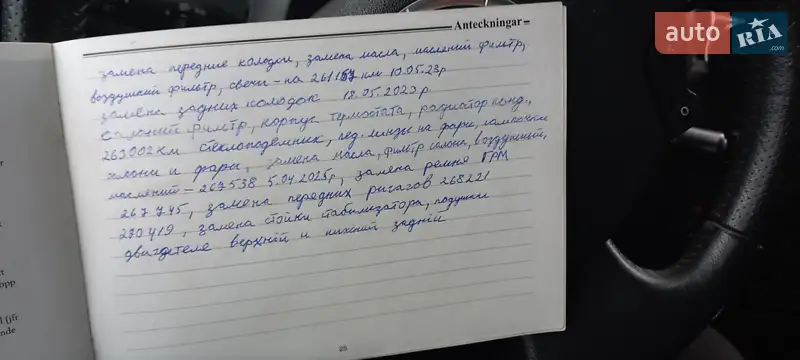 Anteckningar
замена передние колодки, замена масла, маслений фильтр,
воздушний фильтр, свечи - на 261.157 км 10.05.23р
замена задних колодок 18.05.2023р
салоний фильтр, корпус термостата, радиатор конд.,
263002 км стеклоподемник, лед. линзы на фары, лампочки
и фары, замена масла, фильтр салона, воздушний,
маслений - 267538 5.04.2025р, замена ремня ГРМ
267.745, замена передних ричагов 268221
270.419, замена стойки стабилизатора, подушки
двигателе верхній и нижний задній
opp
l (jfr
nde
auto RIA
.com